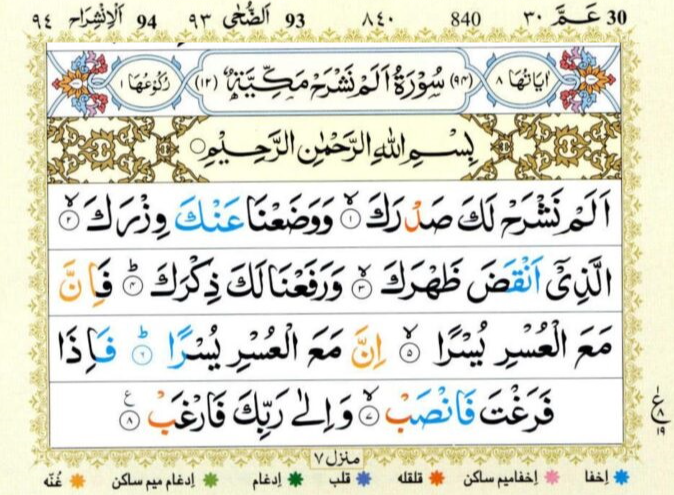 30 عَمَّ ٣٠ 840 ٨٤٠ 93 اَلضُّحٰى ٩٣ 94 اَلْاِنْشِرَاح ٩٤
اٰيَاتُهَا ٨ (٩٤) سُوْرَةُ اَلَمْ نَشْرَحْ مَكِّيَّةٌ (١٢) رُكُوْعُهَا ١
بِسْمِ اللّٰهِ الرَّحْمٰنِ الرَّحِيْمِ
اَلَمْ نَشْرَحْ لَكَ صَدْرَكَ ۙ ١ وَوَضَعْنَا عَنْكَ وِزْرَكَ ۙ ٢
الَّذِیْۤ اَنْقَضَ ظَهْرَكَ ۙ ٣ وَرَفَعْنَا لَكَ ذِكْرَكَ ؕ ٤ فَاِنَّ
مَعَ الْعُسْرِ يُسْرًا ۙ ٥ اِنَّ مَعَ الْعُسْرِ يُسْرًا ؕ ٦ فَاِذَا
فَرَغْتَ فَانْصَبْ ۙ ٧ وَاِلٰى رَبِّكَ فَارْغَبْ ٨ ع
ع ٨ ١٩
منزل ٧
اِخفا اِخفامیم ساکن قلقله قلب اِدغام اِدغام میم ساکن غُنّه